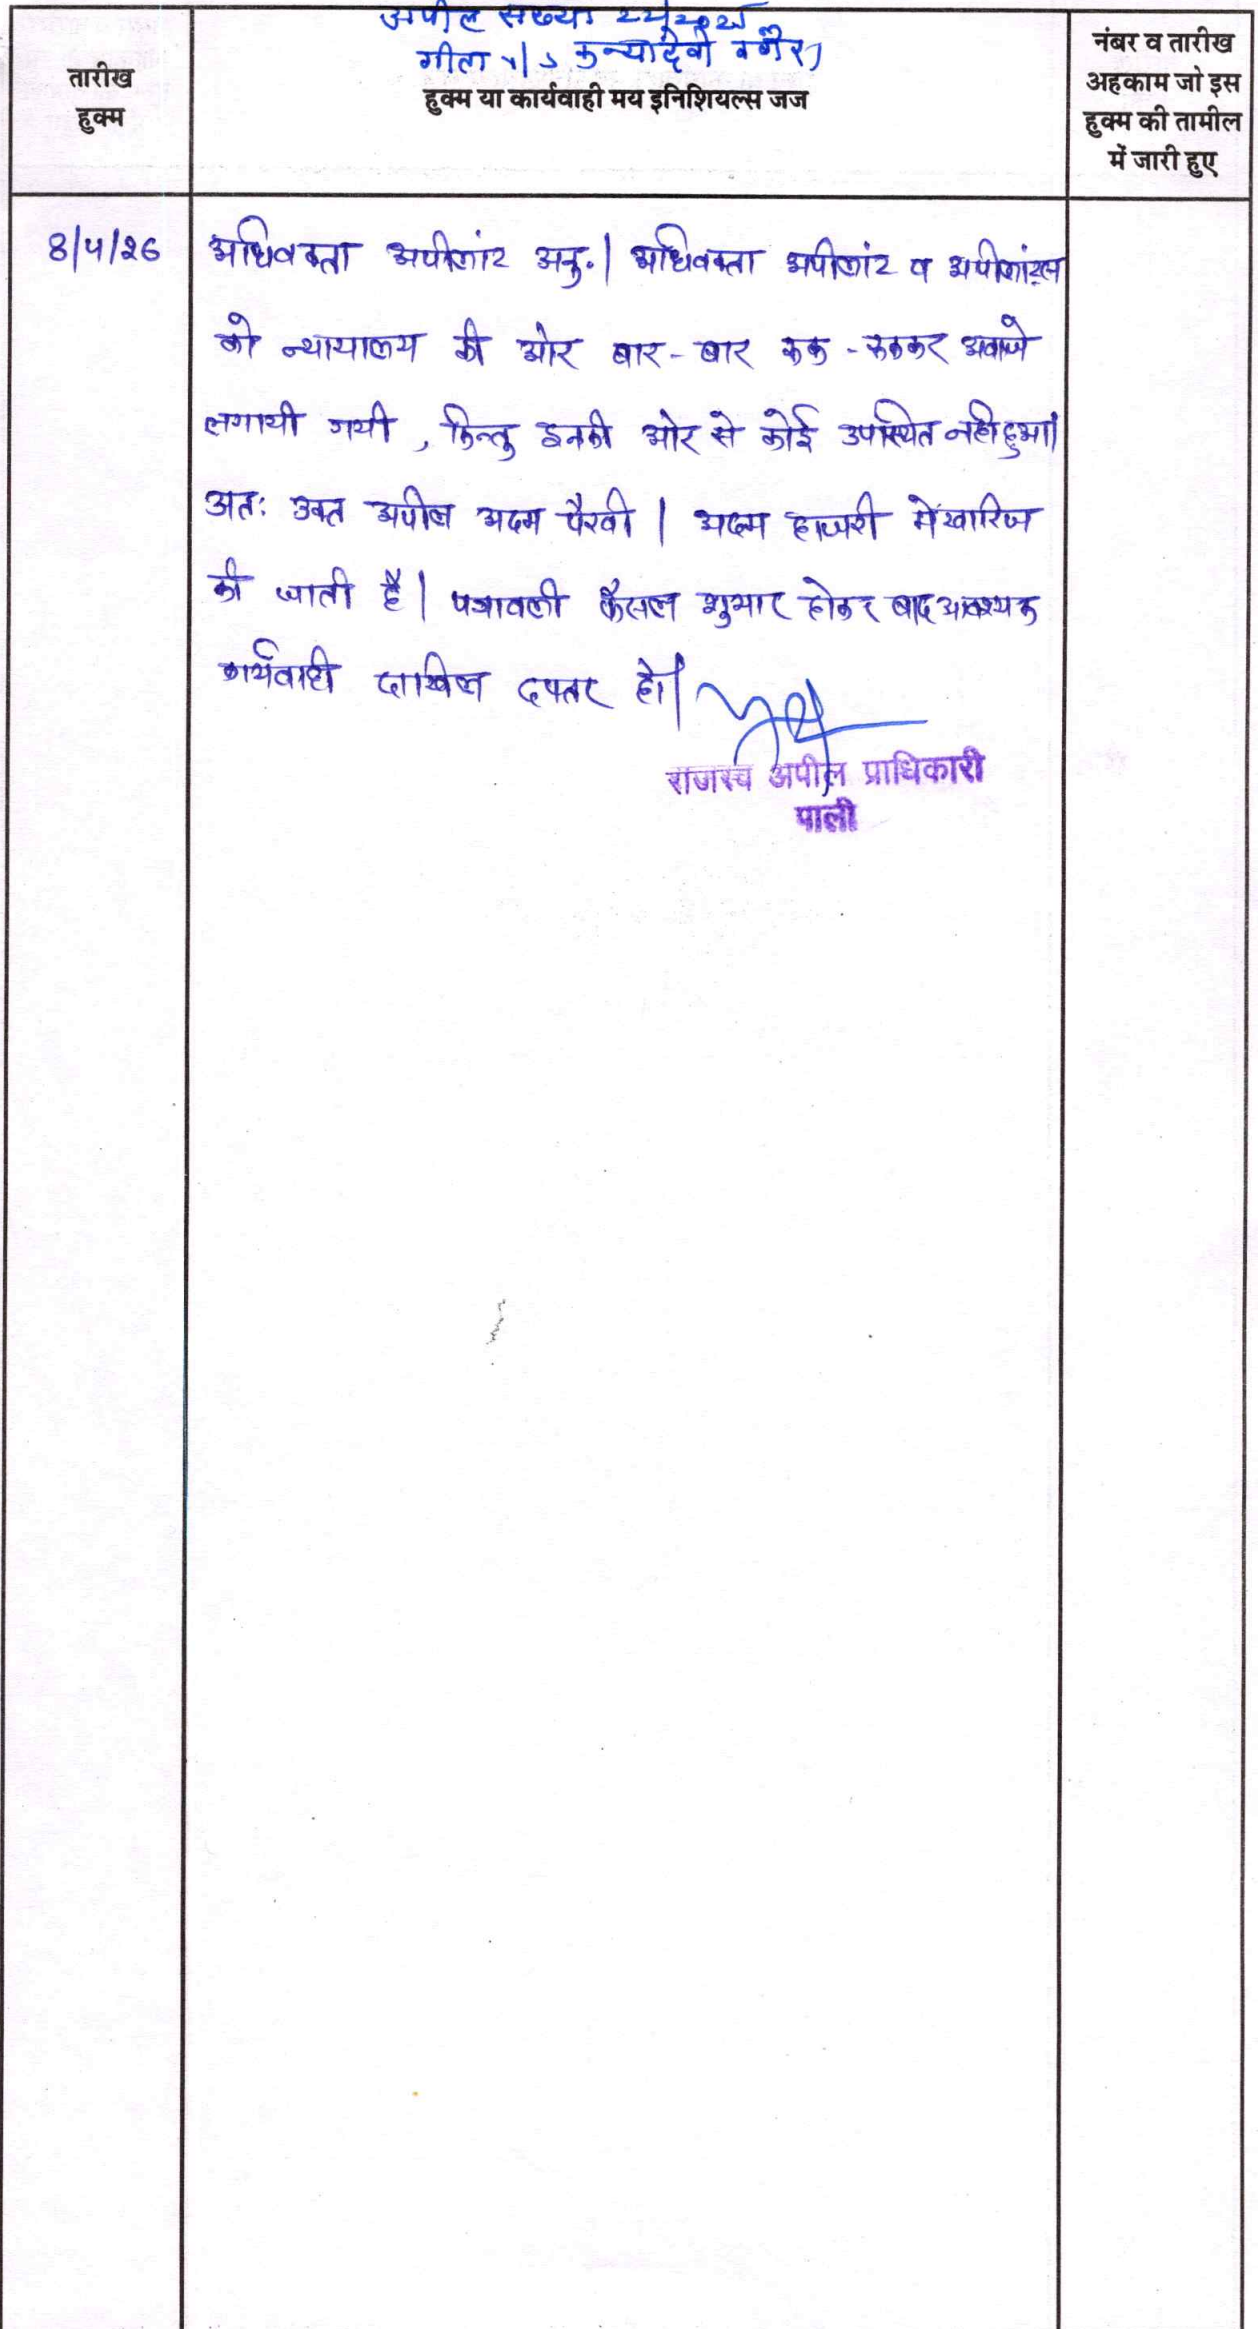 अपील संख्या
गीता v/s कन्यादेवी वगैरा
तारीख
हुक्म
हुक्म या कार्यवाही मय इनिशियल्स जज
नंबर व तारीख
अहकाम जो इस
हुक्म की तामील
में जारी हुए
8/4/26 अधिवक्ता अपीलांट अनु.| अधिवक्ता अपीलांट व अपीलांट्स
को न्यायालय की ओर बार-बार रूक-रूककर अवाजे
लगायी गयी, किन्तु इनकी ओर से कोई उपस्थित नही हुआ।
अतः उक्त अपील अदम पैरवी | अदम हाजरी में खारिज
की जाती है| पत्रावली फैसल शुमार होकर बाद आवश्यक
कार्यवाही दाखिल दफ्तर हो|
राजस्व अपील प्राधिकारी
पाली